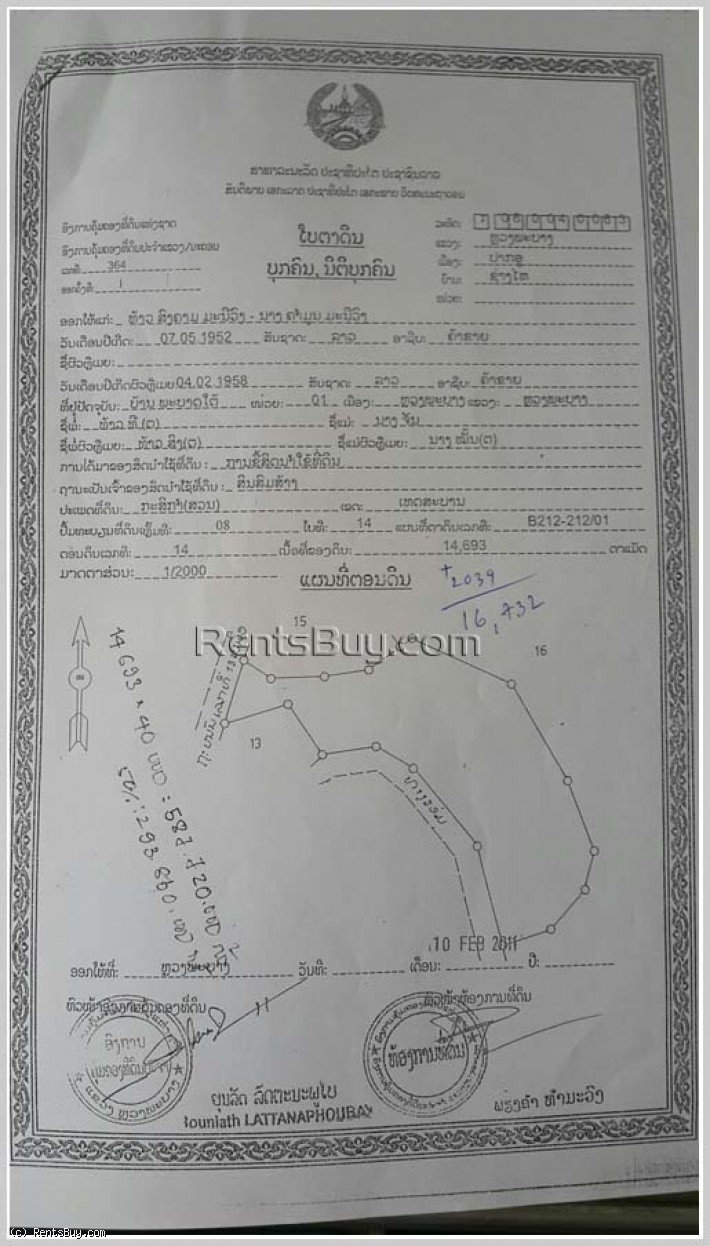 ສາທາລະນະລັດ ປະຊາທິປະໄຕ ປະຊາຊົນລາວ
ສັນຕິພາບ ເອກະລາດ ປະຊາທິປະໄຕ ເອກະພາບ ວັດທະນະຖາວອນ
ອົງການຄຸ້ມຄອງທີ່ດິນແຫ່ງຊາດ
ອົງການຄຸ້ມຄອງທີ່ດິນປະຈຳແຂວງ/ນະຄອນ
ເລກທີ: 364
ອອກຄັ້ງທີ: 1
ໃບຕາດິນ
ບຸກຄົນ, ນິຕິບຸກຄົນ
ລະຫັດ:
ແຂວງ: ຫຼວງພະບາງ
ເມືອງ: ປາກອູ
ບ້ານ: ຊ່າງໄຫ
ໜ່ວຍ:
ອອກໃຫ້ແກ່: ທ້າວ ສົງຄາມ ມະນີວົງ - ນາງ ຄຳມູນ ມະນີວົງ
ວັນເດືອນປີເກີດ: 07.05 1952 ສັນຊາດ: ລາວ ອາຊີບ: ຄ້າຂາຍ
ຊື່ຜົວຫຼືເມຍ:
ວັນເດືອນປີເກີດຜົວຫຼືເມຍ 04.02 1958 ສັນຊາດ: ລາວ ອາຊີບ: ຄ້າຂາຍ
ທີ່ຢູ່ປັດຈຸບັນ: ບ້ານ ພະບາດໃຕ້ ໜ່ວຍ: 01 ເມືອງ: ຫຼວງພະບາງ ແຂວງ: ຫຼວງພະບາງ
ຊື່ພໍ່: ທ້າວ ທີ(ຕ) ຊື່ແມ່: ນາງ ຈັນ
ຊື່ພໍ່ຜົວຫຼືເມຍ: ທ້າວ ສິງ(ຕ) ຊື່ແມ່ຜົວຫຼືເມຍ: ນາງ ໝັ້ນ(ຕ)
ການໄດ້ມາຂອງສິດນຳໃຊ້ທີ່ດິນ: ການຊື້ສິດນຳໃຊ້ທີ່ດິນ
ຖານະເປັນເຈົ້າຂອງສິດນຳໃຊ້ທີ່ດິນ: ສິນສົມສ້າງ
ປະເພດທີ່ດິນ: ກະສິກຳ(ສວນ) ເຂດ: ເທດສະບານ
ປຶ້ມທະບຽນທີ່ດິນເຫຼັ້ມທີ: 08 ໃບທີ: 14 ແຜນທີ່ຕາດິນເລກທີ: B212-212/01
ຕອນດິນເລກທີ: 14 ເນື້ອທີ່ຂອງດິນ: 14,693 ຕາແມັດ
ມາດຕາສ່ວນ: 1/2000 ແຜນທີ່ຕອນດິນ
+2039
16,732
RentsBuy.com
15
16
13
ທາງຮ່ອມ
10 FEB 2011
ອອກໃຫ້ທີ່: ຫຼວງພະບາງ ວັນທີ: ເດືອນ: ປີ:
ຫົວໜ້າອົງການຄຸ້ມຄອງທີ່ດິນ
ຫົວໜ້າຫ້ອງການທີ່ດິນ
ອົງການ
ຄຸ້ມຄອງທີ່ດິນ
ຫ້ອງການທີ່ດິນ
ບຸນລັດ ລັດຕະນະພູໄບ
Bounlath LATTANAPHOUBAY
ພຽງຄຳ ທຳມະວົງ
(c) RentsBuy.com